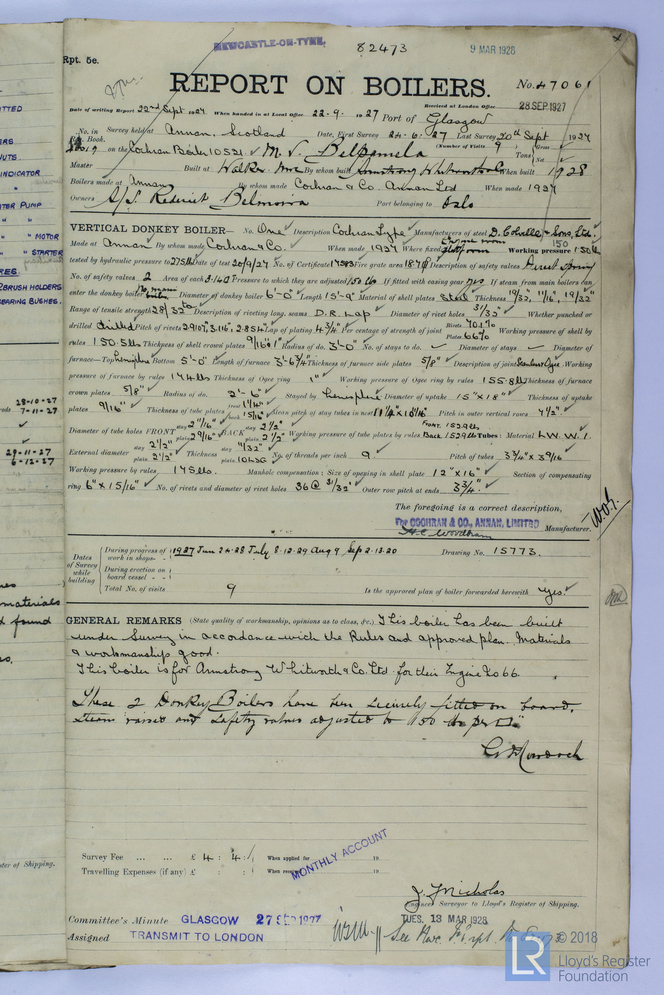 NEWCASTLE-ON-TYNE. 82473 9 MAR 1928
Rpt. 5e.
REPORT ON BOILERS. No. 47061
Received at London Office 28 SEP 1927
Date of writing Report 22nd Sept 1927 When handed in at Local Office 22.9.1927 Port of Glasgow
No. in Reg. Book. Survey held at Annan, Scotland Date, First Survey 24.6.27 Last Survey 20th Sept 1927
on the Cochran Boiler 10521 M.V. Belpamela (Number of Visits 9) Tons Gross Net
Master Built at Walker By whom built Armstrong Whitworth & Co When built 1928
Boilers made at Annan By whom made Cochran & Co. Annan Ltd When made 1927
Owners A/S Rederiet Belmoira Port belonging to Oslo
VERTICAL DONKEY BOILER— No. One Description Cochran Type Manufacturers of steel D. Colville & Sons, Ltd.
Made at Annan By whom made Cochran & Co. When made 1927 Where fixed Engine room platform Working pressure 150 lb
tested by hydraulic pressure to 275 lb Date of test 20/9/27 No. of Certificate Fire grate area Description of safety valves Direct spring
No. of safety valves 2 Area of each 3.140 Pressure to which they are adjusted 150 lb If fitted with easing gear yes If steam from main boilers can
enter the donkey boiler No main boiler Diameter of donkey boiler 6'-0" Length 15'-9" Material of shell plates Steel Thickness 9/32, 11/16, 19/32
Range of tensile strength 28/32 Description of riveting long. seams D.R. Lap Diameter of rivet holes 31/32" Whether punched or
drilled drilled Pitch of rivets Lap of plating 4 3/4 Per centage of strength of joint Rivets 70.1% Plates 66% Working pressure of shell by
rules 150.5 lbs Thickness of shell crown plates 9/16" Radius of do. 3'-0" No. of stays to do. ✓ Diameter of stays ✓ Diameter of
furnace—Top Hemisphere Bottom 5'-0" Length of furnace 3'-6 3/4" Thickness of furnace side plates 5/8" Description of joint Working
pressure of furnace by rules 174 lbs Thickness of Ogee ring 1" Working pressure of Ogee ring by rules 155.8 lb Thickness of furnace
crown plates 5/8" Radius of do. 2'-6" Stayed by Hemisphere Diameter of uptake 15"x18" Thickness of uptake
plates 9/16" Thickness of tube plates front back 15/16" Mean pitch of stay tubes in nest Pitch in outer vertical rows 4 1/2"
Diameter of tube holes FRONT stay 2 11/16" plain 2 9/16" BACK stay 2 1/2" plain 2 1/2" Working pressure of tube plates by rules Front 152.9 lb Back 152.9 lb Tubes: Material L.W.W.I.
External diameter stay 2 1/2" plain 2 1/2" Thickness stay 11/32" plain 10 LSG No. of threads per inch 9 Pitch of tubes 3 3/4" x 3 9/16
Working pressure by rules 175 lb. Manhole compensation: Size of opening in shell plate 12"x16" Section of compensating
ring 6" x 15/16" No. of rivets and diameter of rivet holes 36 @ 31/32" Outer row pitch at ends 3 3/4"
The foregoing is a correct description,
For COCHRAN & CO., ANNAN, LIMITED Manufacturer.
Dates of Survey while building During progress of work in shops - - 1927 Jun 24.28 July 8.12.29 Aug 9 Sep 2.13.20 Drawing No. 15773.
During erection on board vessel - - -
Total No. of visits 9 Is the approved plan of boiler forwarded herewith yes.
GENERAL REMARKS (State quality of workmanship, opinions as to class, &c.) This boiler has been built
under Survey in accordance with the Rules and approved plan. Materials
& workmanship good.
This boiler is for Armstrong Whitworth & Co. Ltd. for their Engine No 66.
These 2 Donkey Boilers have been securely fitted on board.
steam raised and safety valves adjusted to 150 lbs per □"
Survey Fee ... ... £ 4 : 4 : When applied for 19
Travelling Expenses (if any) £ : : When received 19
MONTHLY ACCOUNT
J. Nicholas
Engineer Surveyor to Lloyd's Register of Shipping.
Committee's Minute GLASGOW 27 SEP 1927 TUES. 13 MAR 1928
Assigned TRANSMIT TO LONDON
LR © 2018
Lloyd's Register
Foundation
INDICATOR
" MOTOR
" STARTER
BRUSH HOLDERS
BEARING BUSHES.
28-10-27
7-11-27
29-11-27
6-12-27
materials
found